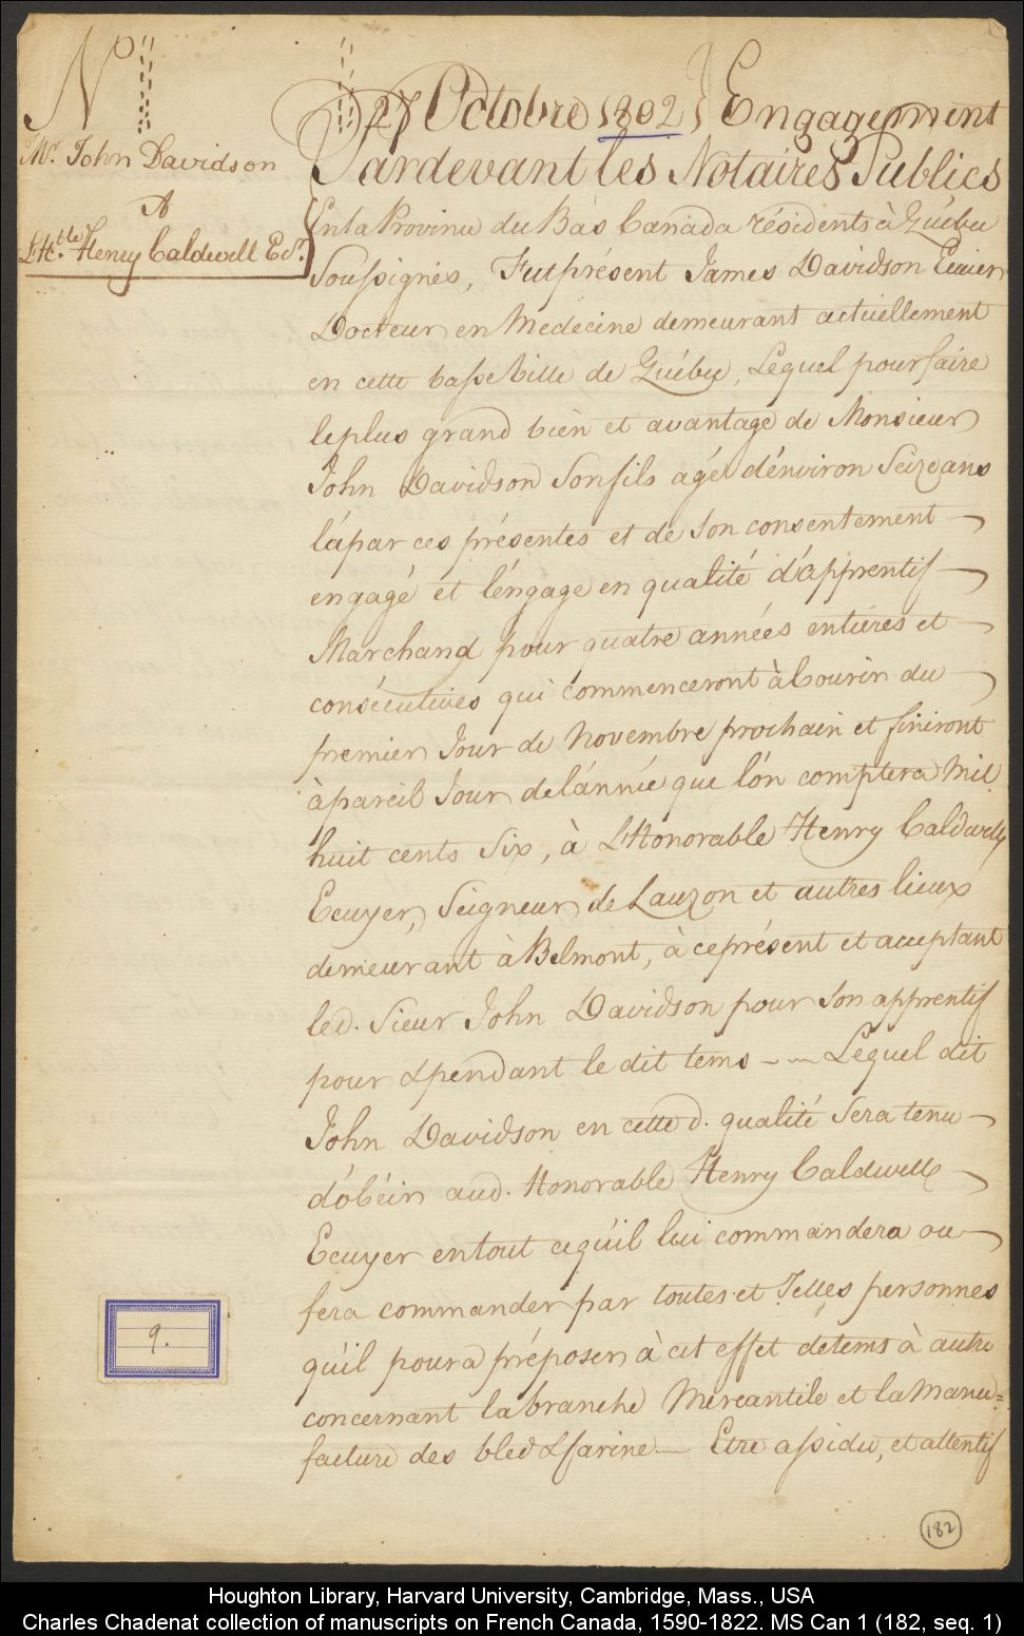 No
27 Octobre 1802 } Engagement
Mr. John Davidson
A
L'H.ble Henry Caldwell Ecr.
Pardevant les Notaires Publics
En la Province du Bas Canada résidents à Québec
Soussignés, Fut présent James Davidson Ecuier
Docteur en Medecine demeurant actuellement
en cette basse Ville de Québec, Lequel pour faire
le plus grand bien et avantage de Monsieur
John Davidson Son fils agé d'énviron Seize ans
l'á par ces présentes et de Son consentement
engagé et l'éngage en qualité d'apprentif
Marchand pour quatre années entières et
consécutives qui commenceront à Courir du
premier Jour de Novembre prochain et finiront
à pareil Jour de l'ánnée que l'ón comptera Mil
huit cents Six, à L'Honorable Henry Caldwell
Ecuyer, Seigneur de Lauzon et autres lieux
demeurant à Belmont, à ce présent et acceptant
led. Sieur John Davidson pour Son apprentif
pour & pendant le dit tems - — Lequel dit
John Davidson en cette d. qualité Sera tenu
d'óbéir aud. Honorable Henry Caldwell
Ecuyer en tout ce qu'il lui commandera ou
fera commander par toutes et Telles personnes
qu'il poura préposer à cet effet de tems à autre
concernant la branche Mercantile et la Manu=
facture des bled & farine — Etre assidu, et attentif
9.
182
Houghton Library, Harvard University, Cambridge, Mass., USA
Charles Chadenat collection of manuscripts on French Canada, 1590-1822. MS Can 1 (182, seq. 1)